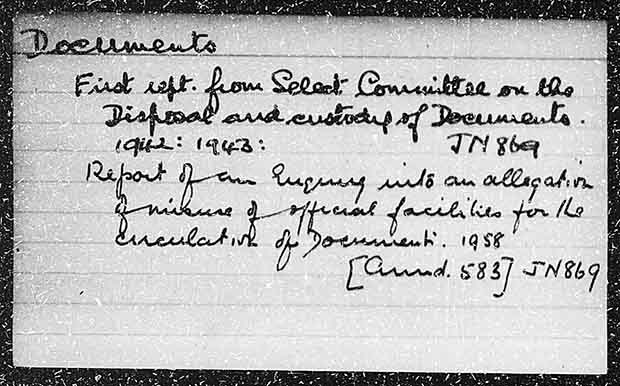 Documents
First rept. from Select Committee on the
Disposal and custody of Documents.
1942: 1943: JN869
Report of an Enquiry into an allegation
of misuse of official facilities for the
circulation of Documents. 1958
[Cmnd. 583] JN869